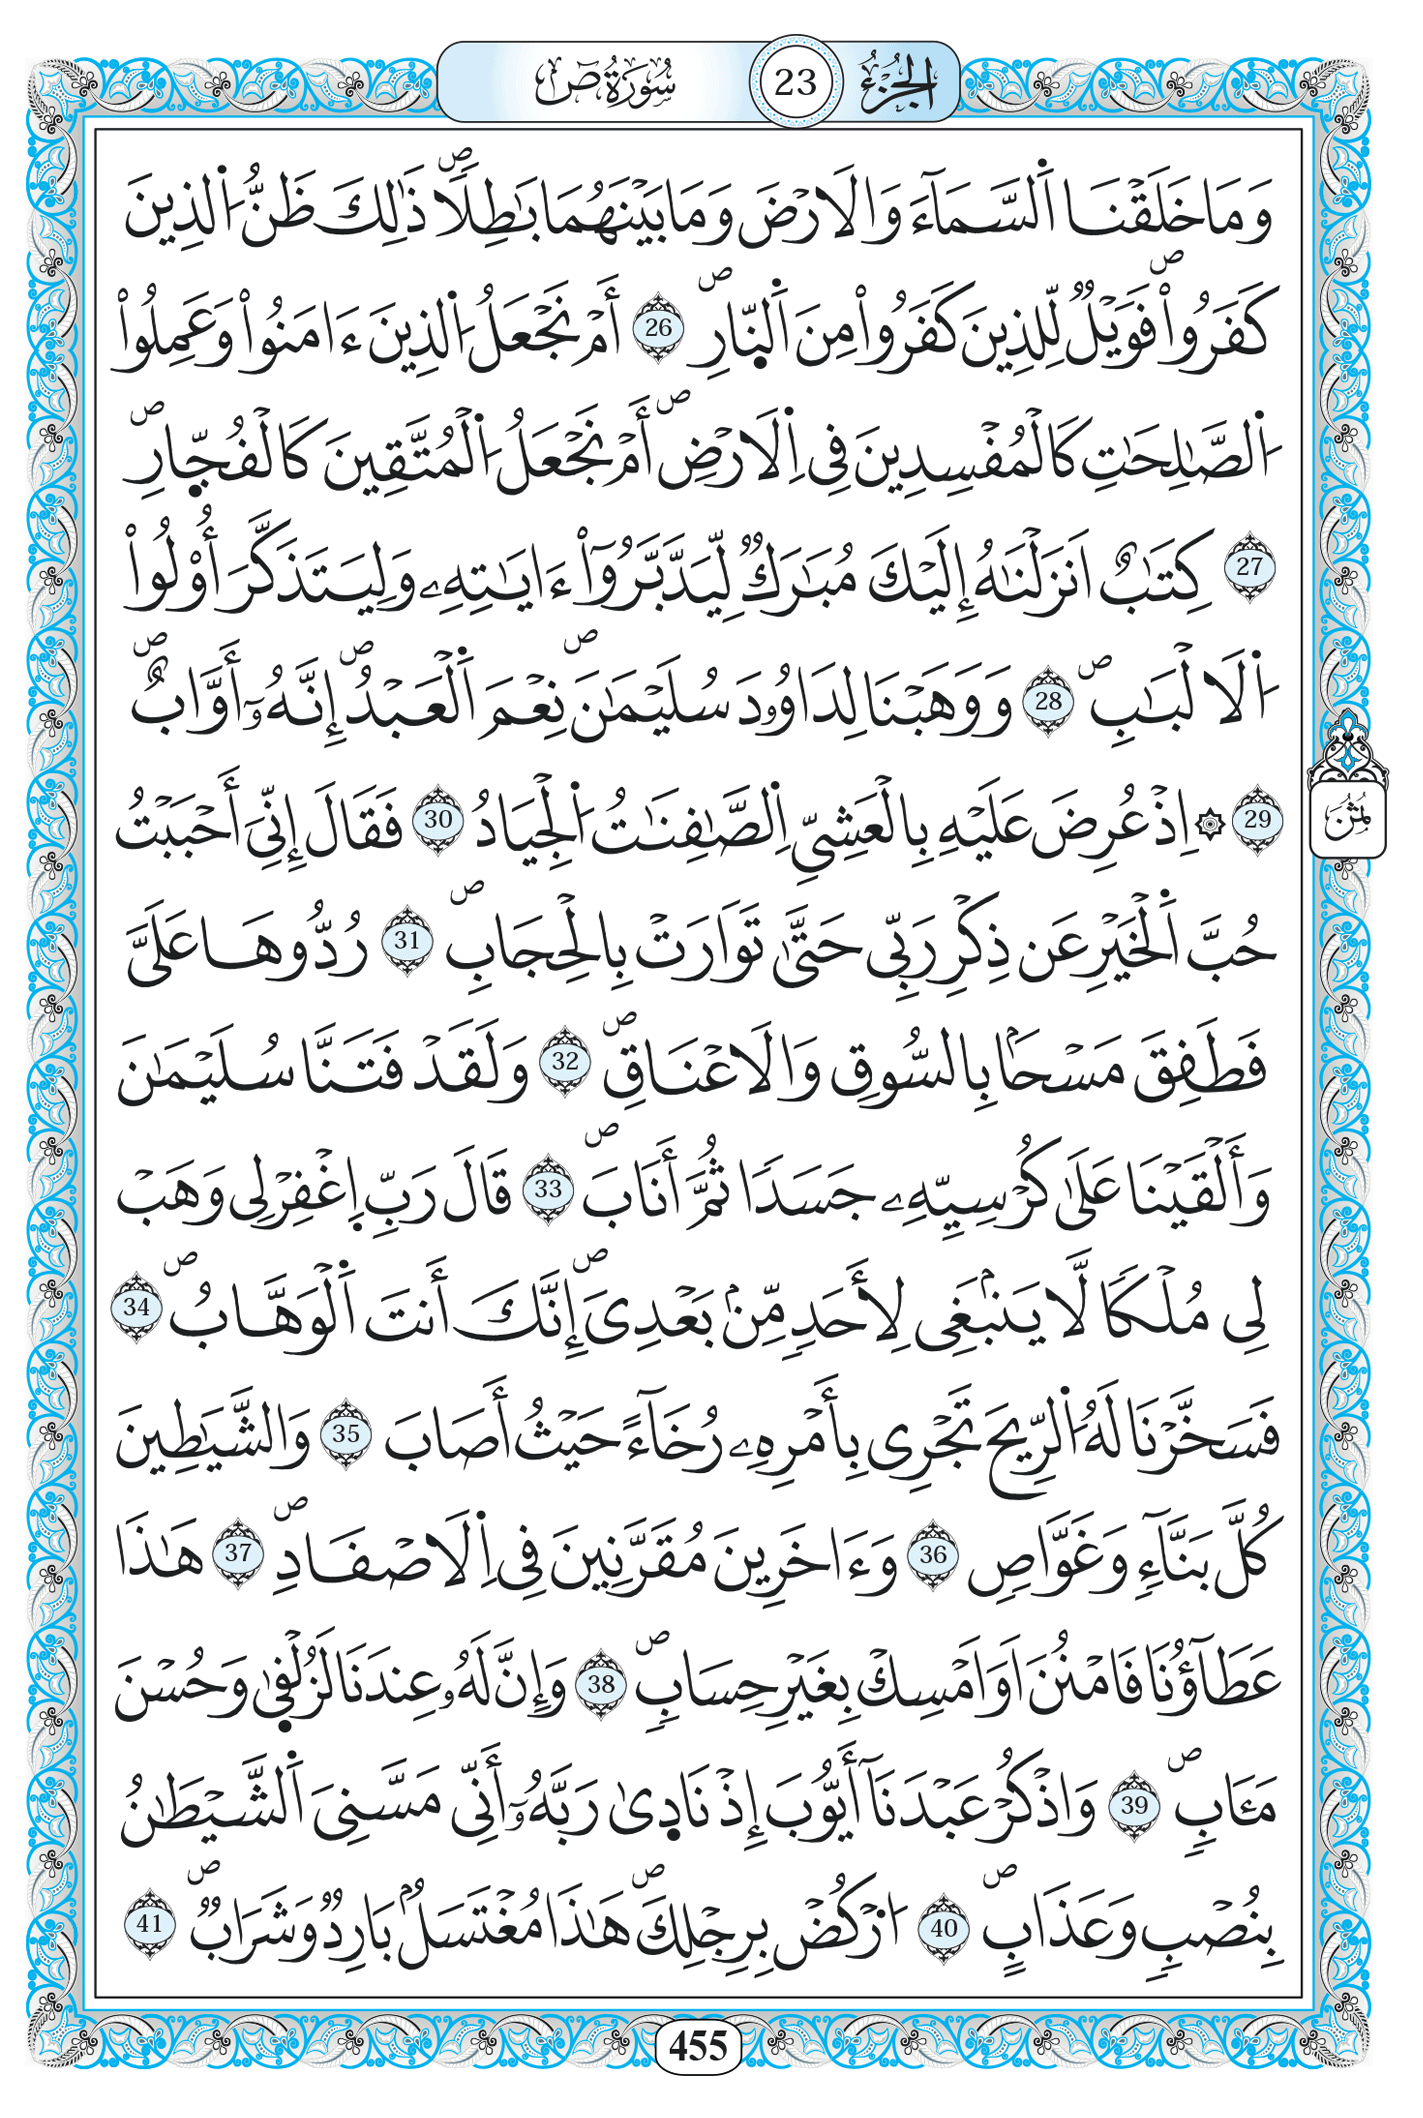 الجزء 23 سورة ص
وَمَا خَلَقْنَا اَ۬لسَّمَآءَ وَالَارْضَ وَمَا بَيْنَهُمَا بَٰطِلاٗۖ ذَٰلِكَ ظَنُّ اُ۬لذِينَ
كَفَرُواْۖ فَوَيْلٞ لِّلذِينَ كَفَرُواْ مِنَ اَ۬لنّ۪ارِۖ 26 أَمْ نَجْعَلُ اُ۬لذِينَ ءَامَنُواْ وَعَمِلُواْ
اُ۬لصَّٰلِحَٰتِ كَالْمُفْسِدِينَ فِي اِ۬لَارْضِۖ أَمْ نَجْعَلُ اُ۬لْمُتَّقِينَ كَالْفُجّ۪ارِۖ
27 كِتَٰبٌ اَنزَلْنَٰهُ إِلَيْكَ مُبَٰرَكٞ لِّيَدَّبَّرُوٓاْ ءَايَٰتِهِۦ وَلِيَتَذَكَّرَ أُوْلُواْ
اُ۬لَالْبَٰبِۖ 28 وَوَهَبْنَا لِدَاوُۥدَ سُلَيْمَٰنَۖ نِعْمَ اَ۬لْعَبْدُۖ إِنَّهُۥٓ أَوَّابٌۖ
29 ۞ اِذْ عُرِضَ عَلَيْهِ بِالْعَشِيِّ اِ۬لصَّٰفِنَٰتُ اُ۬لْجِيَادُ 30 فَقَالَ إِنِّيَ أَحْبَبْتُ
حُبَّ اَ۬لْخَيْرِ عَن ذِكْرِ رَبِّي حَتَّىٰ تَوَارَتْ بِالْحِجَابِۖ 31 رُدُّوهَا عَلَيَّ
فَطَفِقَ مَسْحَاۢ بِالسُّوقِ وَالَاعْنَاقِۖ 32 وَلَقَدْ فَتَنَّا سُلَيْمَٰنَ
وَأَلْقَيْنَا عَلَىٰ كُرْسِيِّهِۦ جَسَداٗ ثُمَّ أَنَابَۖ 33 قَالَ رَبِّ اِ۪غْفِرْ لِي وَهَبْ
لِي مُلْكاٗ لَّا يَنۢبَغِي لِأَحَدٖ مِّنۢ بَعْدِيَۖ إِنَّكَ أَنتَ اَ۬لْوَهَّابُۖ 34
فَسَخَّرْنَا لَهُ اُ۬لرِّيحَ تَجْرِي بِأَمْرِهِۦ رُخَآءً حَيْثُ أَصَابَ 35 وَالشَّيَٰطِينَ
كُلَّ بَنَّآءٖ وَغَوَّاصٖ 36 وَءَاخَرِينَ مُقَرَّنِينَ فِي اِ۬لَاصْفَادِۖ 37 هَٰذَا
عَطَآؤُنَا فَامْنُنَ اَوَ اَمْسِكْ بِغَيْرِ حِسَابٖۖ 38 وَإِنَّ لَهُۥ عِندَنَا لَزُلْف۪ىٰ وَحُسْنَ
مَـَٔابٖۖ 39 وَاذْكُرْ عَبْدَنَآ أَيُّوبَ إِذْ نَاد۪ىٰ رَبَّهُۥٓ أَنِّي مَسَّنِيَ اَ۬لشَّيْطَٰنُ
بِنُصْبٖ وَعَذَابٍۖ 40 اُ۟رْكُضْ بِرِجْلِكَۖ هَٰذَا مُغْتَسَلُۢ بَارِدٞ وَشَرَابٞۖ 41
ثُمُنْ
455